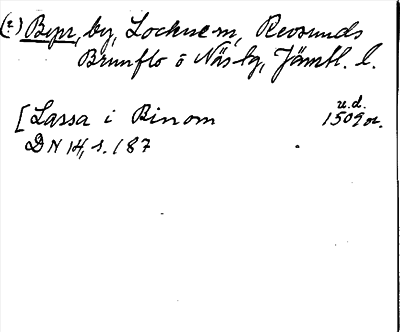 (?) Bynr, by, Lockne sn, Revsunds
Brunflo o Näs tg, Jämtl. l.
u.d.
[Lassa i Binom 1509 or.
DN 14, s. 187